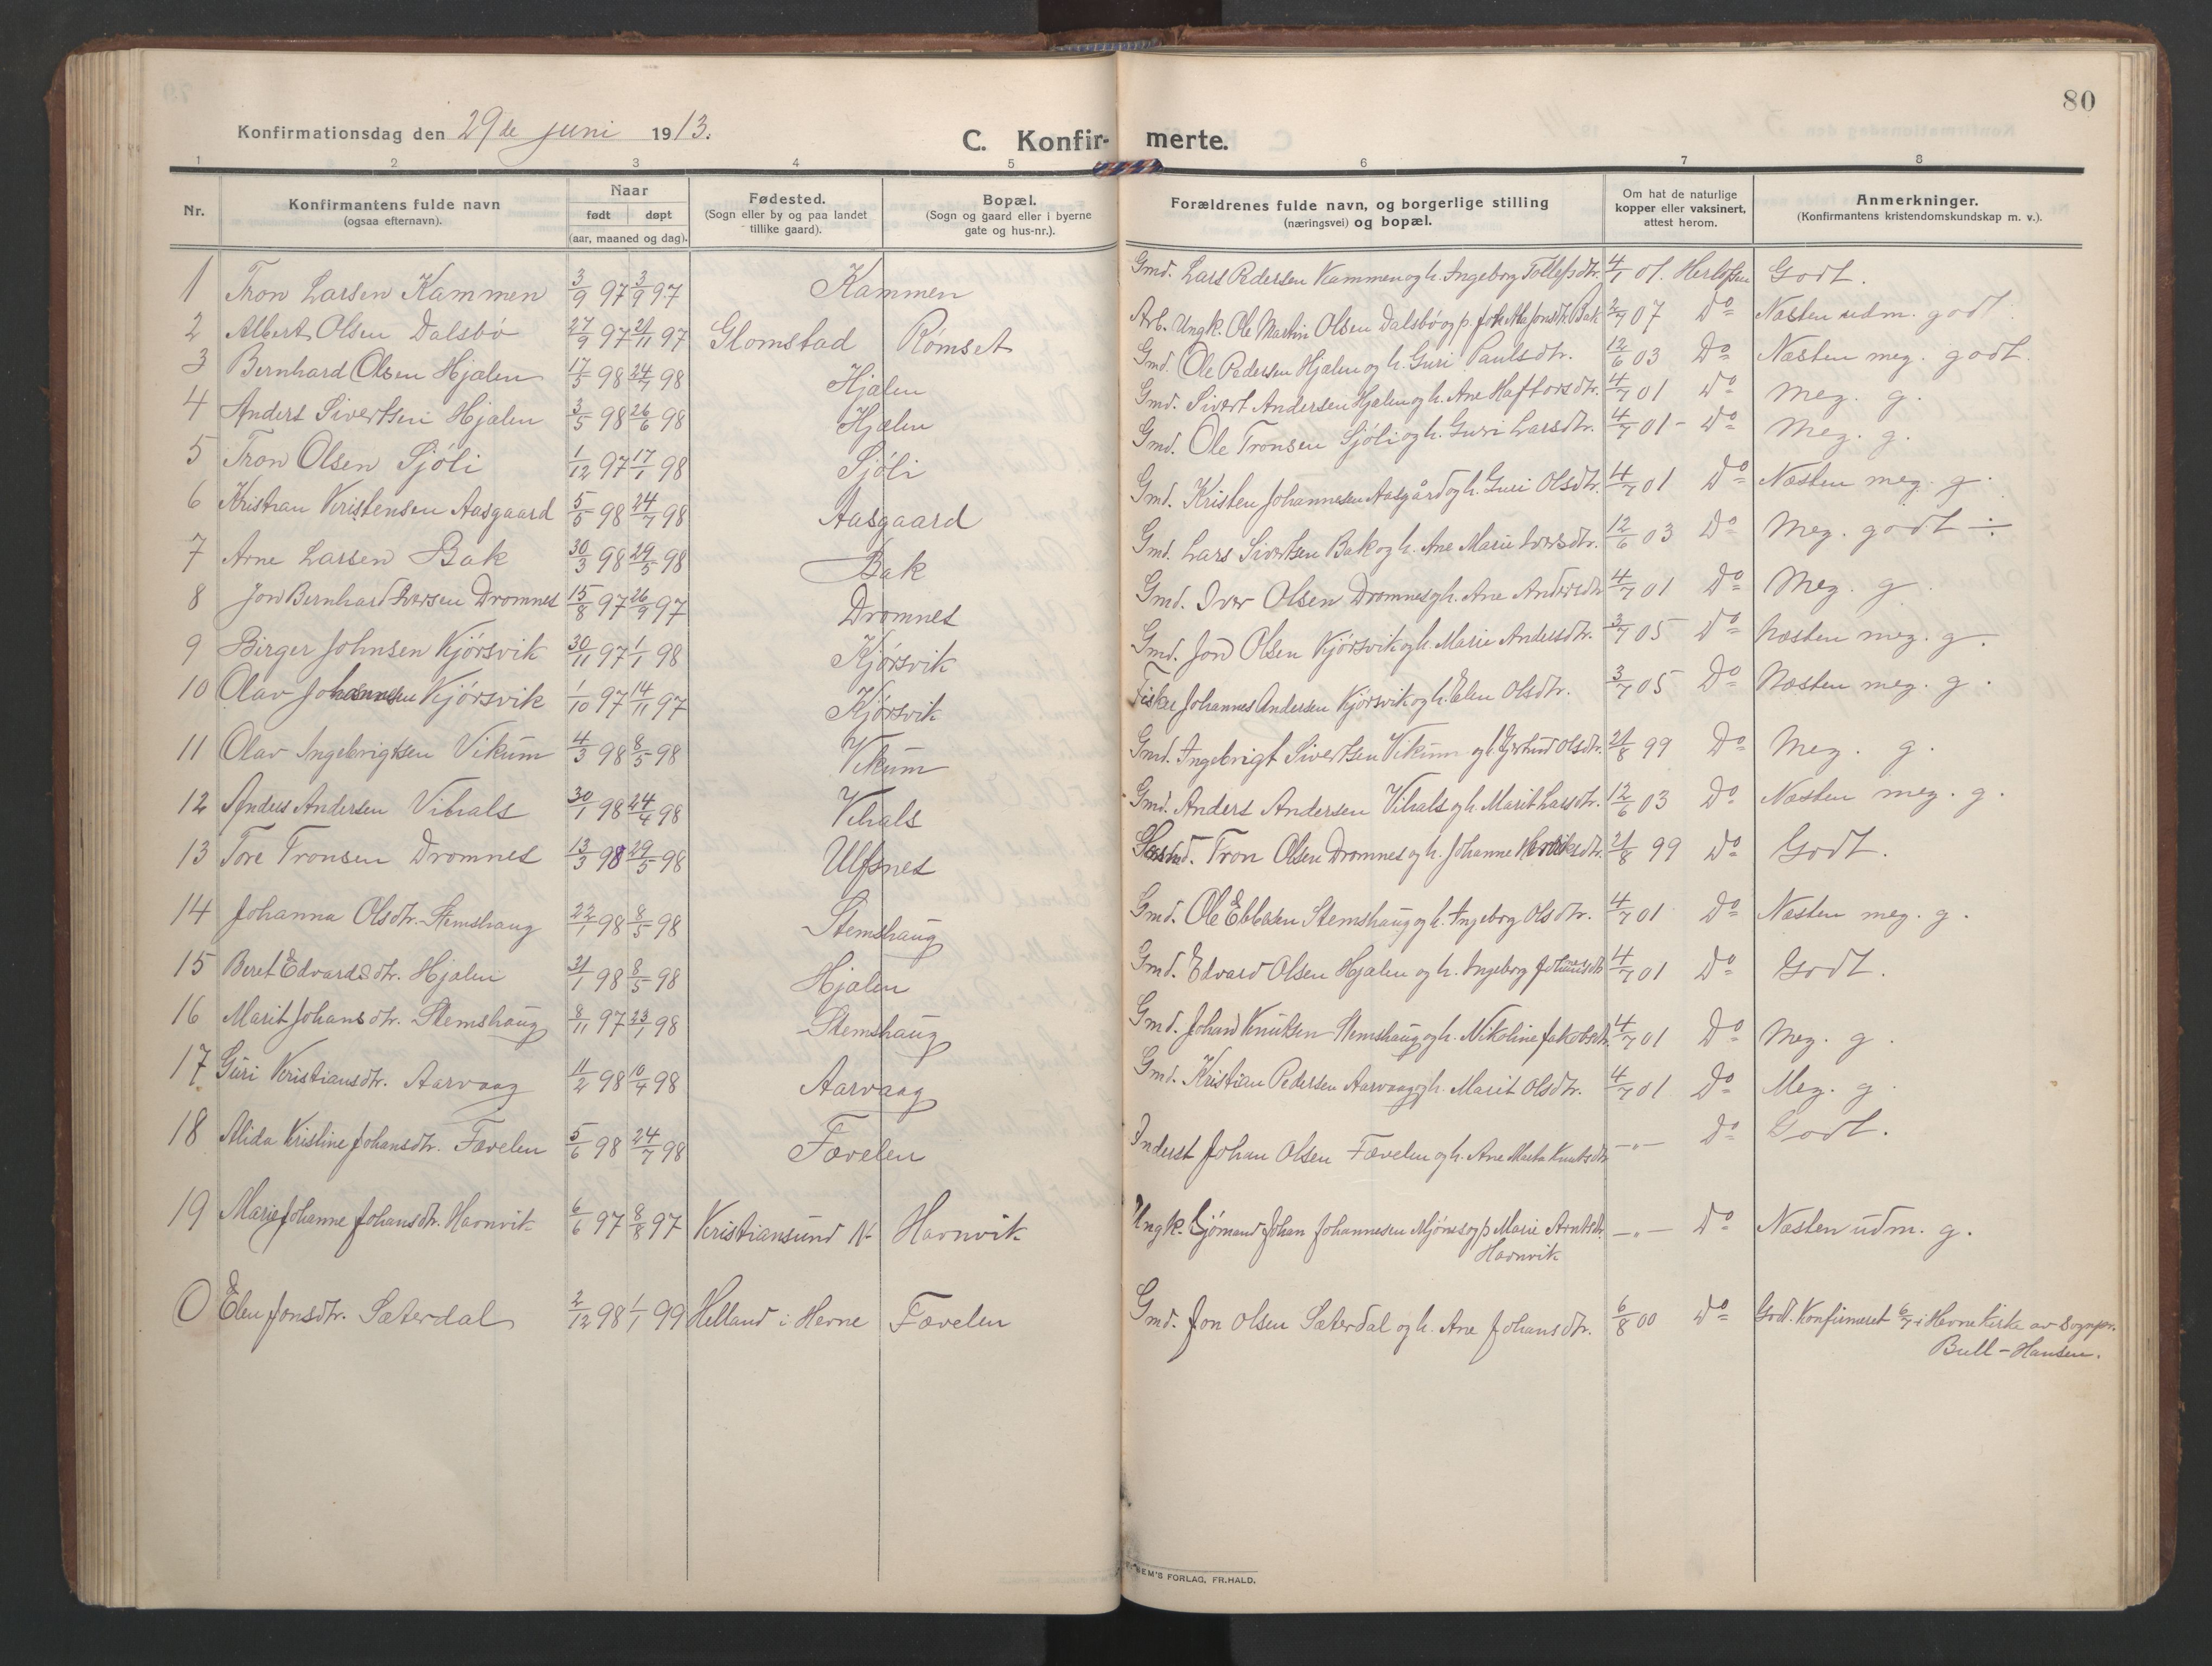 80
Konfirmationsdag den 29de juni 1913.
C. Konfirmerte.
1 2 3 4 5 6 7 8
Nr. Konfirmantens fulde navn (ogsaa efternavn). Naar født døpt (aar, maaned og dag). Fødested. (Sogn eller by og paa landet tillike gaard). Bopæl. (Sogn og gaard eller i byerne gate og hus-nr.). Forældrenes fulde navn, og borgerlige stilling (næringsvei) og bopæl. Om hat de naturlige kopper eller vaksinert, attest herom. Anmerkninger. (Konfirmantens kristendomskundskap m. v.).
1 Tron Larsen Kammen 3/9 97 3/9 97 Kammen Gmd. Lars Pedersen Kammen og h. Ingeborg Tollefsdtr. 4/7 01. Godt.
2 Albert Olsen Dalsbø 27/9 97 21/11 97 Glomstad Rømset Arb. Ungk. Ole Martin Olsen Dalsbø og p. Bak 2/7 07 Do Næsten udm. godt.
3 Bernhard Olsen Hjælen 17/5 98 24/7 98 Hjælen Gmd. Ole Pedersen Hjælen og h. Guri Paulsdtr. 12/6 03 Do Næsten meg. godt.
4 Anders Sivertsen Hjælen 3/5 98 26/6 98 Hjælen Gmd. Sivert Andersen Hjælen og h. Ane Haftorsdtr. 4/7 01 Do Meg. g.
5 Tron Olsen Sjøli 1/12 97 17/1 98 Sjøli Gmd. Ole Tronsen Sjøli og h. Guri Larsdtr. 4/7 01 - Do Meg. g.
6 Kristian Kristensen Aasgaard 5/5 98 24/7 98 Aasgaard Gmd. Kristen Johannesen Aasgård og h. Guri Olsdtr. 4/7 01 Do Næsten meg. g.
7 Arne Larsen Bak 30/3 98 29/5 98 Bak Gmd. Lars Sivertsen Bak og h. Ane Marie Iversdtr. 12/6 03 Do Meg. godt ÷
8 Jon Bernhard Iversen Dromnes 15/8 97 26/9 97 Dromnes Gmd. Iver Olsen Dromnes og h. Ane Andersdtr 4/7 01 Do Meg. g.
9 Birger Johnsen Kjørsvik 30/11 97 1/1 98 Kjørsvik Gmd. Jon Olsen Kjørsvik og h. Marie Andersdtr. 3/7 05 Do Næsten meg. g.
10 Olav Johannesen Kjørsvik 1/10 97 14/11 97 Kjørsvik Fisker Johannes Andersen Kjørsvik og h. Elen Olsdtr. 3/7 05 Do Næsten meg. g.
11 Olav Ingebrigtsen Vikum 4/3 98 8/5 98 Vikum Gmd. Ingebrigt Sivertsen Vikum og h. Gjertrud Olsdtr. 21/8 99 Do Meg. g.
12 Anders Andersen Vihals 30/1 98 24/4 98 Vihals Gmd. Anders Andersen Vihals og h. Marit Larsdtr. 12/6 03 Do Næsten meg. g.
13 Tore Tronsen Dromnes 13/3 98 29/5 98 Ulfsnes Tron Olsen Dromnes og h. Johanne 21/8 99 Do Godt.
14 Johanna Olsdtr. Stemshaug 22/1 98 8/5 98 Stemshaug Gmd. Ole Ebbesen Stemshaug og h. Ingeborg Olsdtr. 4/7 01 Do Næsten meg. g.
15 Beret Edvardsdtr. Hjælen 31/1 98 8/5 98 Hjælen Gmd. Edvard Olsen Hjælen og h. Ingeborg Johannesdtr 4/7 01 Do Godt.
16 Marit Johansdtr. Stemshaug 8/11 97 23/1 98 Stemshaug Gmd. Johan Knutsen Stemshaug og h. Nikoline Jakobsdtr. 4/7 01 Do Meg. g.
17 Guri Kristiansdtr. Aarvaag 11/2 98 10/4 98 Aarvaag Gmd. Kristian Pedersen Aarvaag og h. Marit Olsdtr. 4/7 01 Do Meg. g.
18 Alida Kristine Johansdtr. Fævelen 5/6 98 24/7 98 Fævelen Inderst Johan Olsen Fævelen og h. Ane Marta Knutsdtr -"- Do Godt.
19 Marie Johanne Johansdtr. Havnvik 6/6 97 8/8 97 Kristiansund N. Havnvik Ungk. Sjømand Johan Johannesen Mjønes og p Marie Arntsdtr. -"- Do Næsten udm. g.
Havnvik
O Elen Jonsdtr. Sæterdal 2/12 98 1/1 99 Helland i Hevne Fævelen Gmd. Jon Olsen Sæterdal og h. Ane Johansdtr. 6/8 00 Do Godt. Konfirmeret 6/7 i Hevne Kirke av Sognpr.
Bull-Hansen.
EM'S FORLAG, FR.HALD.